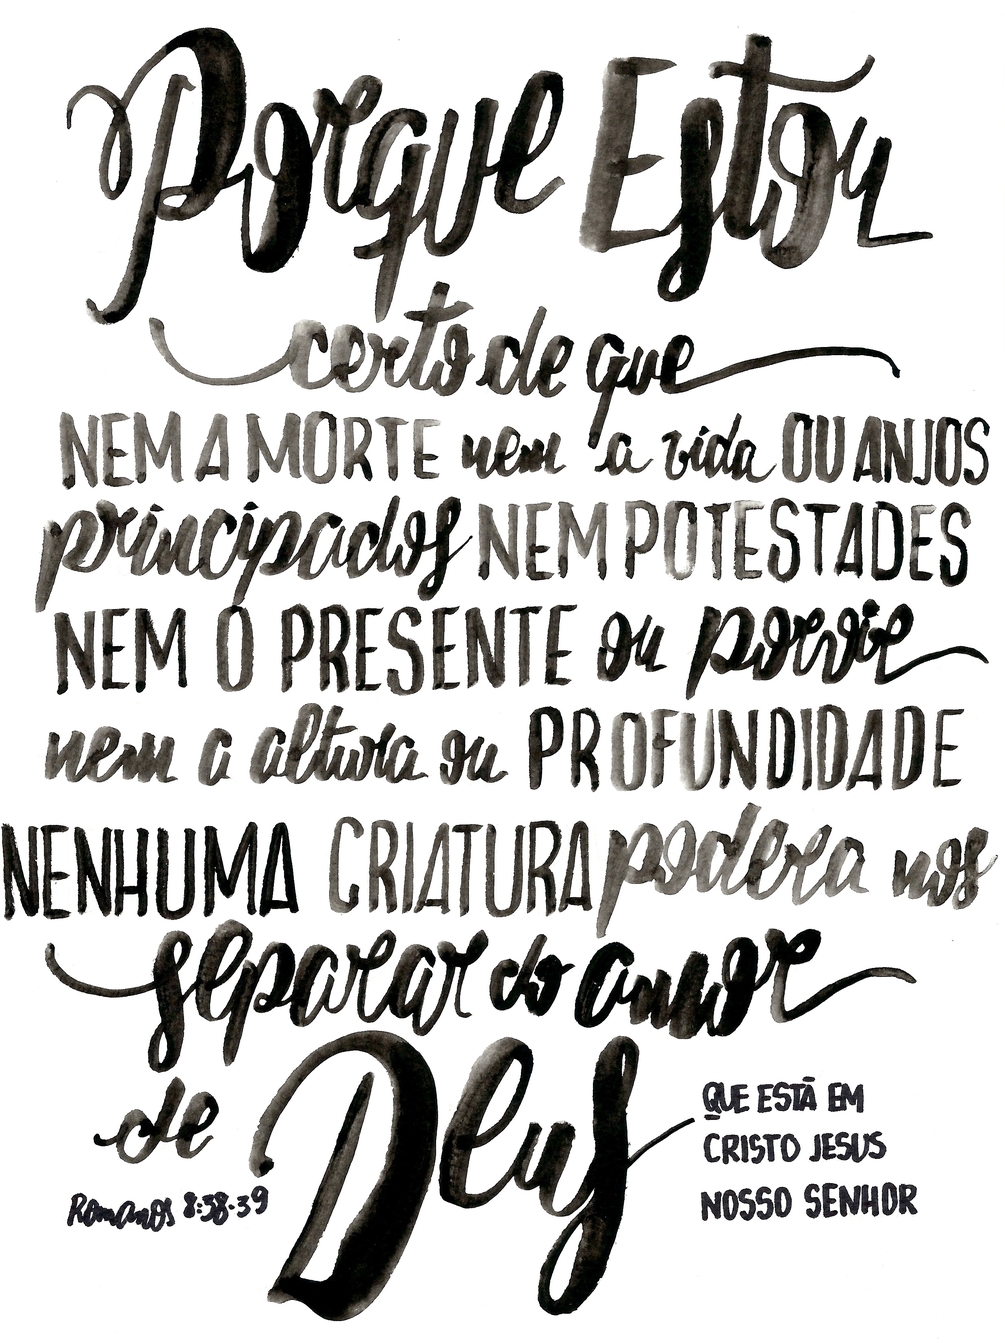 Porque Estou
certo de que
NEM A MORTE nem a vida OU ANJOS
principados NEM POTESTADES
NEM O PRESENTE ou porvir
nem a altura ou PROFUNDIDADE
NENHUMA CRIATURA podera nos
separar do amor
de Deus
QUE ESTÁ EM
CRISTO JESUS
NOSSO SENHOR
Romanos 8:38-39